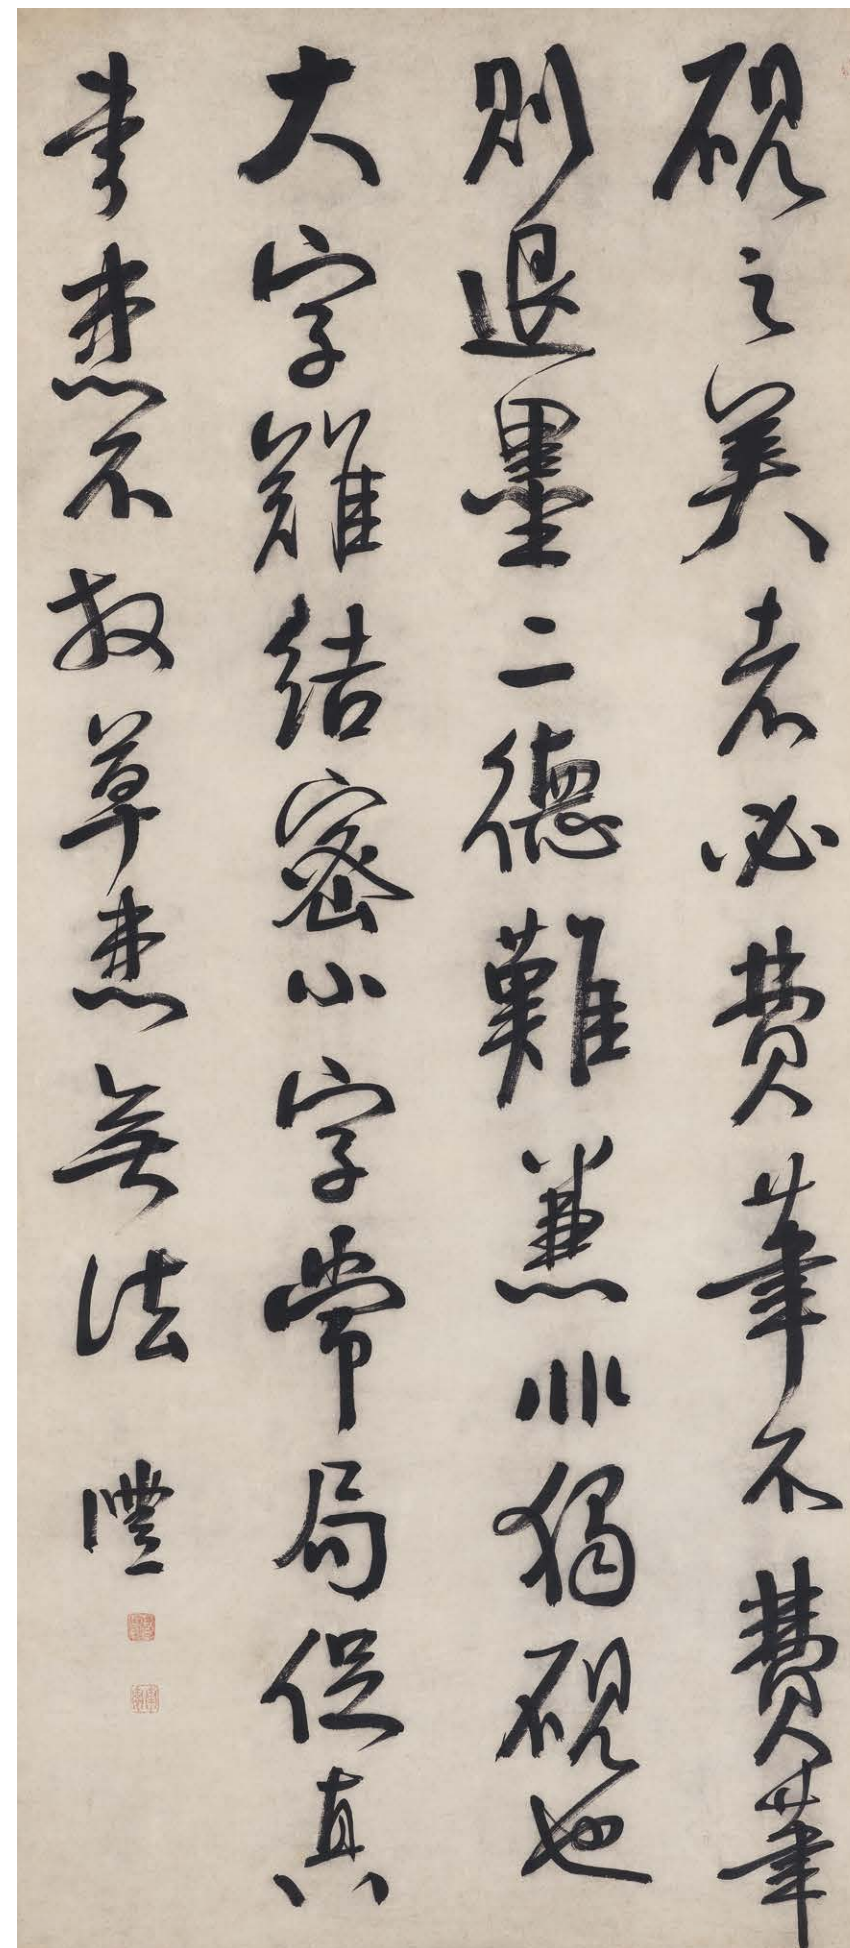 硯之美者必費筆不費筆
則退墨二德難兼非獨硯也
大字難結密小字常局促真
書患不放草患無法
澧